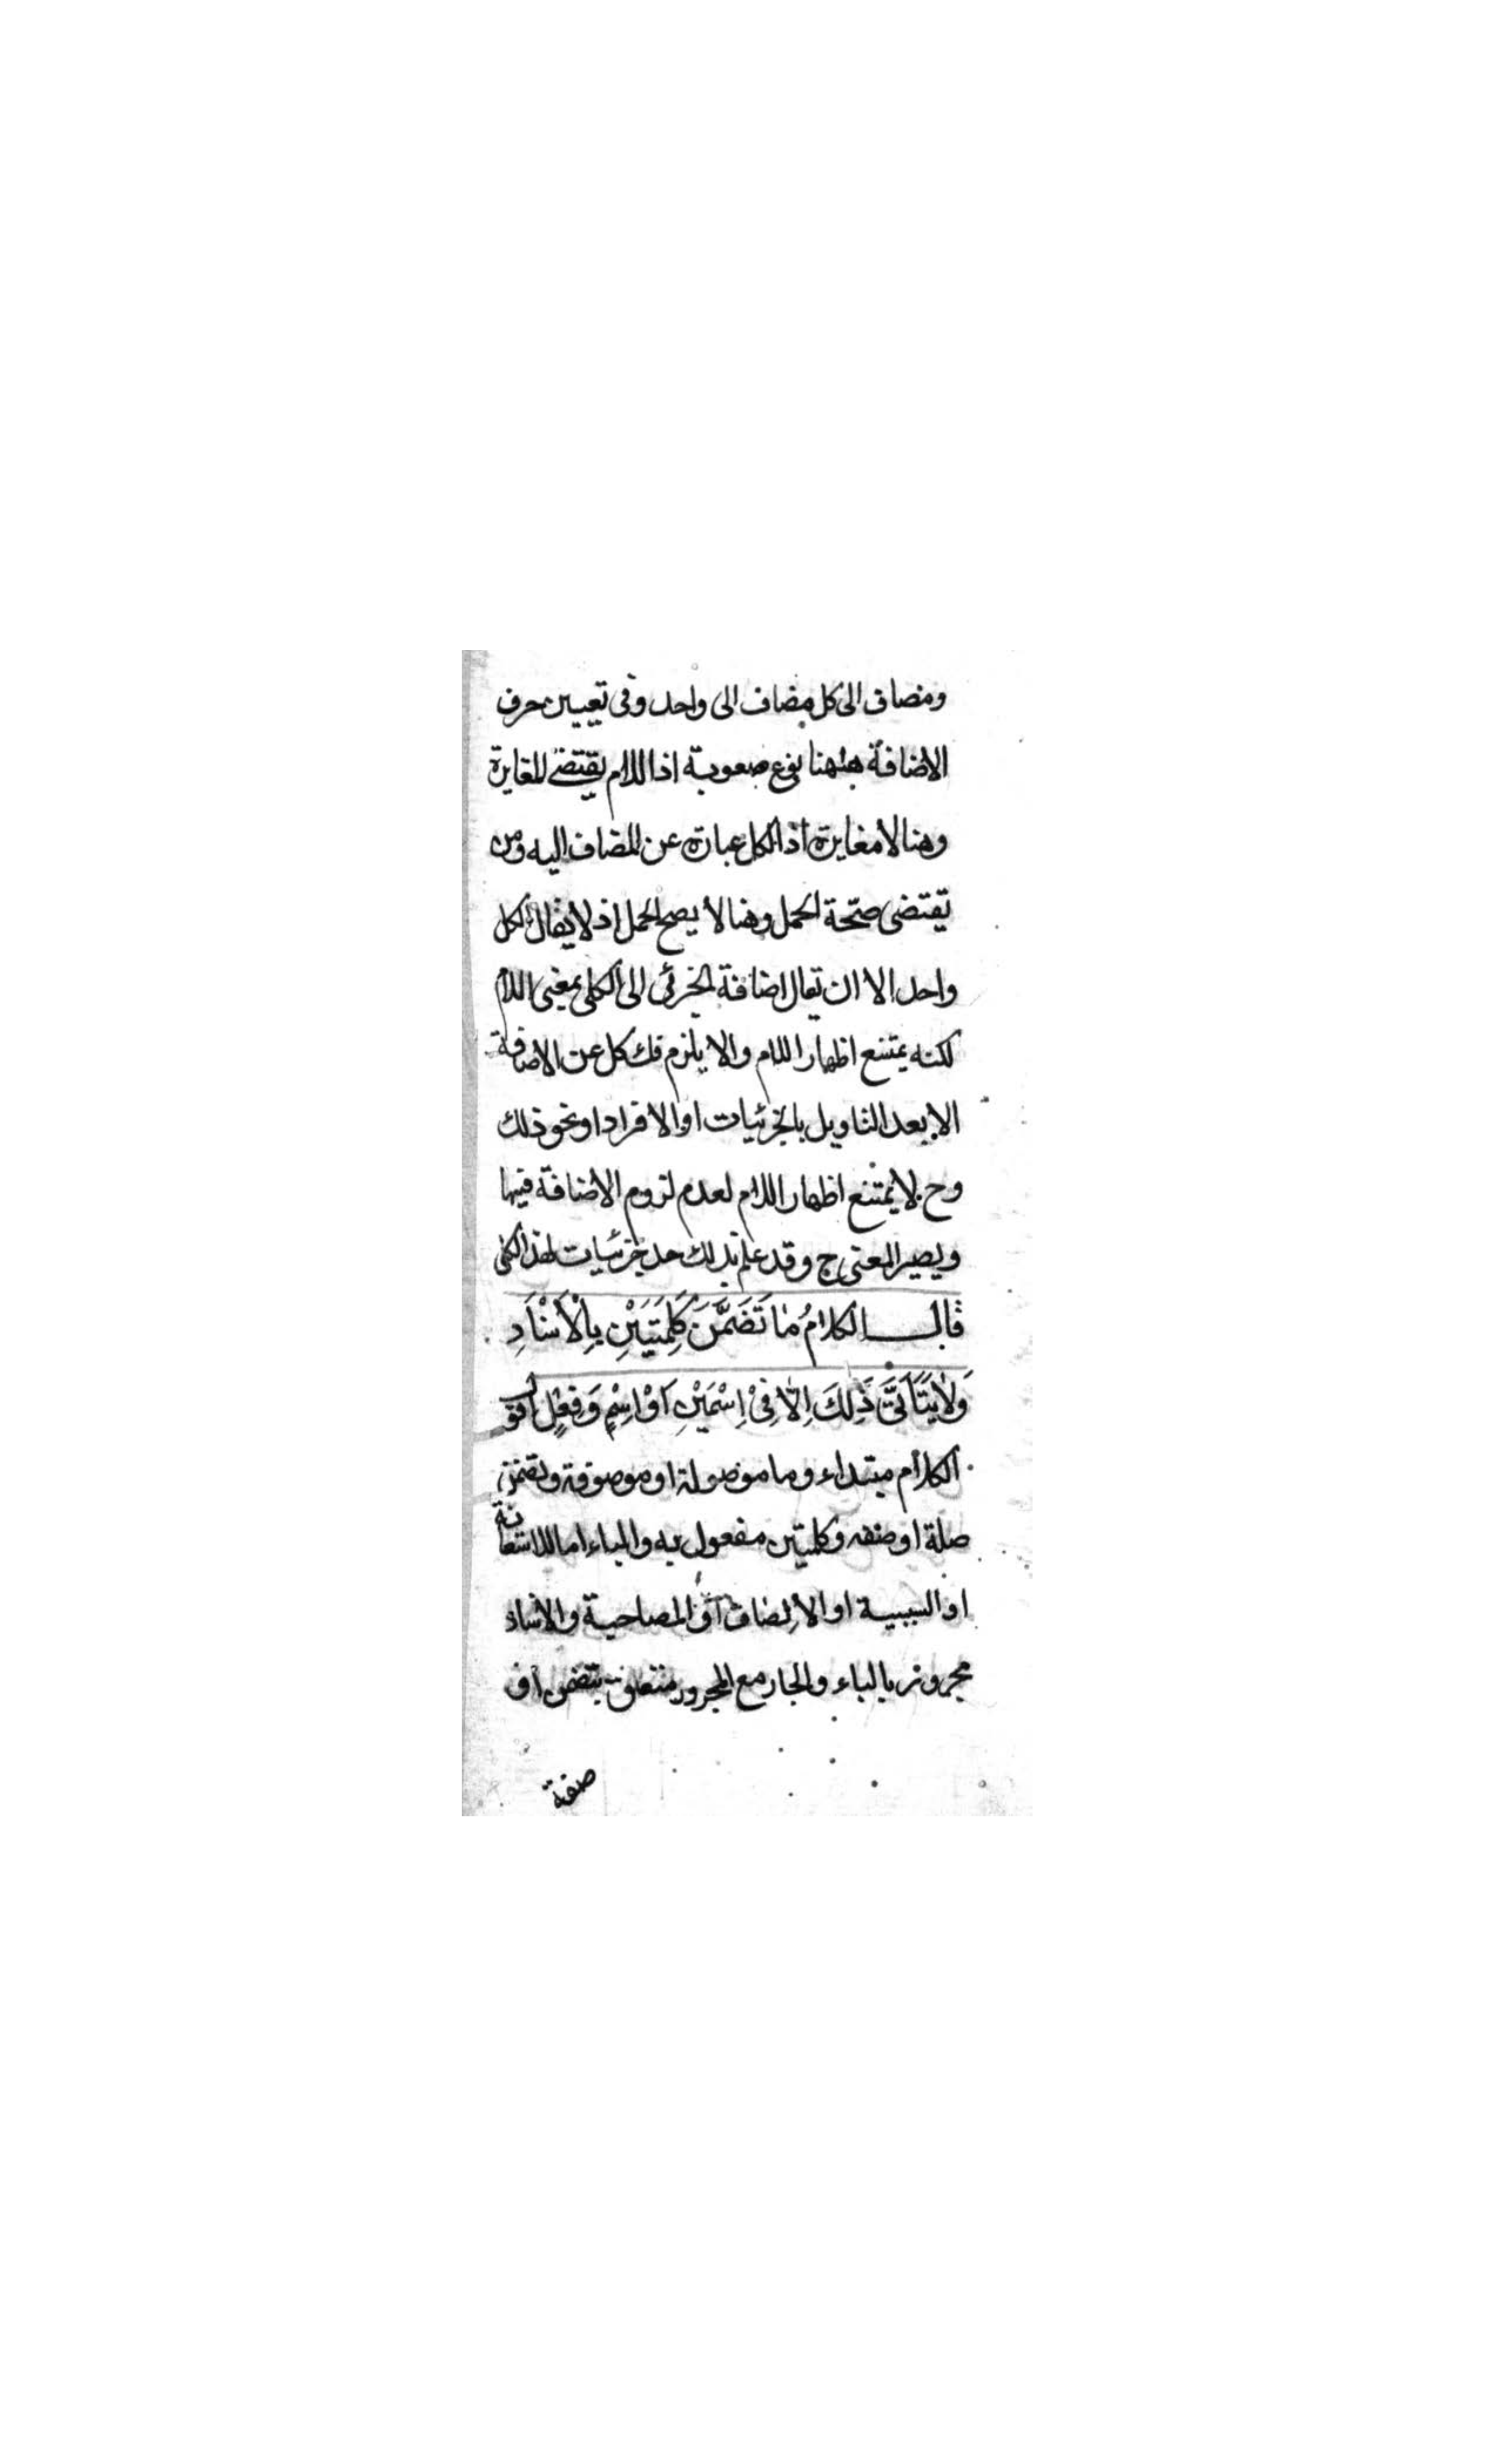 ومضاف الى كل مضاف الى واحد وفى تعيين حرف
الاضافة ههنا نوع صعوبة اذ اللام يقتضى المغايرة
وهنا لا مغايرة اذ الكل عبارة عن المضاف اليه ومن
تقتضى صحّة الحمل وهنا لا يصح الحمل اذ لا يقال الكل
واحد الا ان يقال اضافة الجزئى الى الكلى بمعنى اللام
لكنه يمتنع اظهار اللام والا يلزم فك كل عن الاضافة
الا بعد التاويل بالجزئيات او الافراد او نحو ذلك
وح لا يمتنع اظهار اللام لعدم لزوم الاضافة فيها
ويصير المعنى ح وقد علم بذلك حد جزئيات لهذا الكلى
قال الكلامُ مَا تَضَمَّنَ كَلِمَتَيْنِ بِالْاَسْنَادِ
وَلَا يَتَأَتَّى ذَلِكَ اِلَّا فِىْ اِسْمَيْنِ اَوْ اِسْمٍ وَفِعْلٍ اقول
الكلام مبتداء وما موصولة او موصوفة وتضمن
صلة او صفه وكلمتين مفعول به والباء اما للاستعانة
او السببية او الالصاق او المصاحبة والاسناد
مجرور بالباء والجار مع المجرور متعلق بتضمن او
صفة